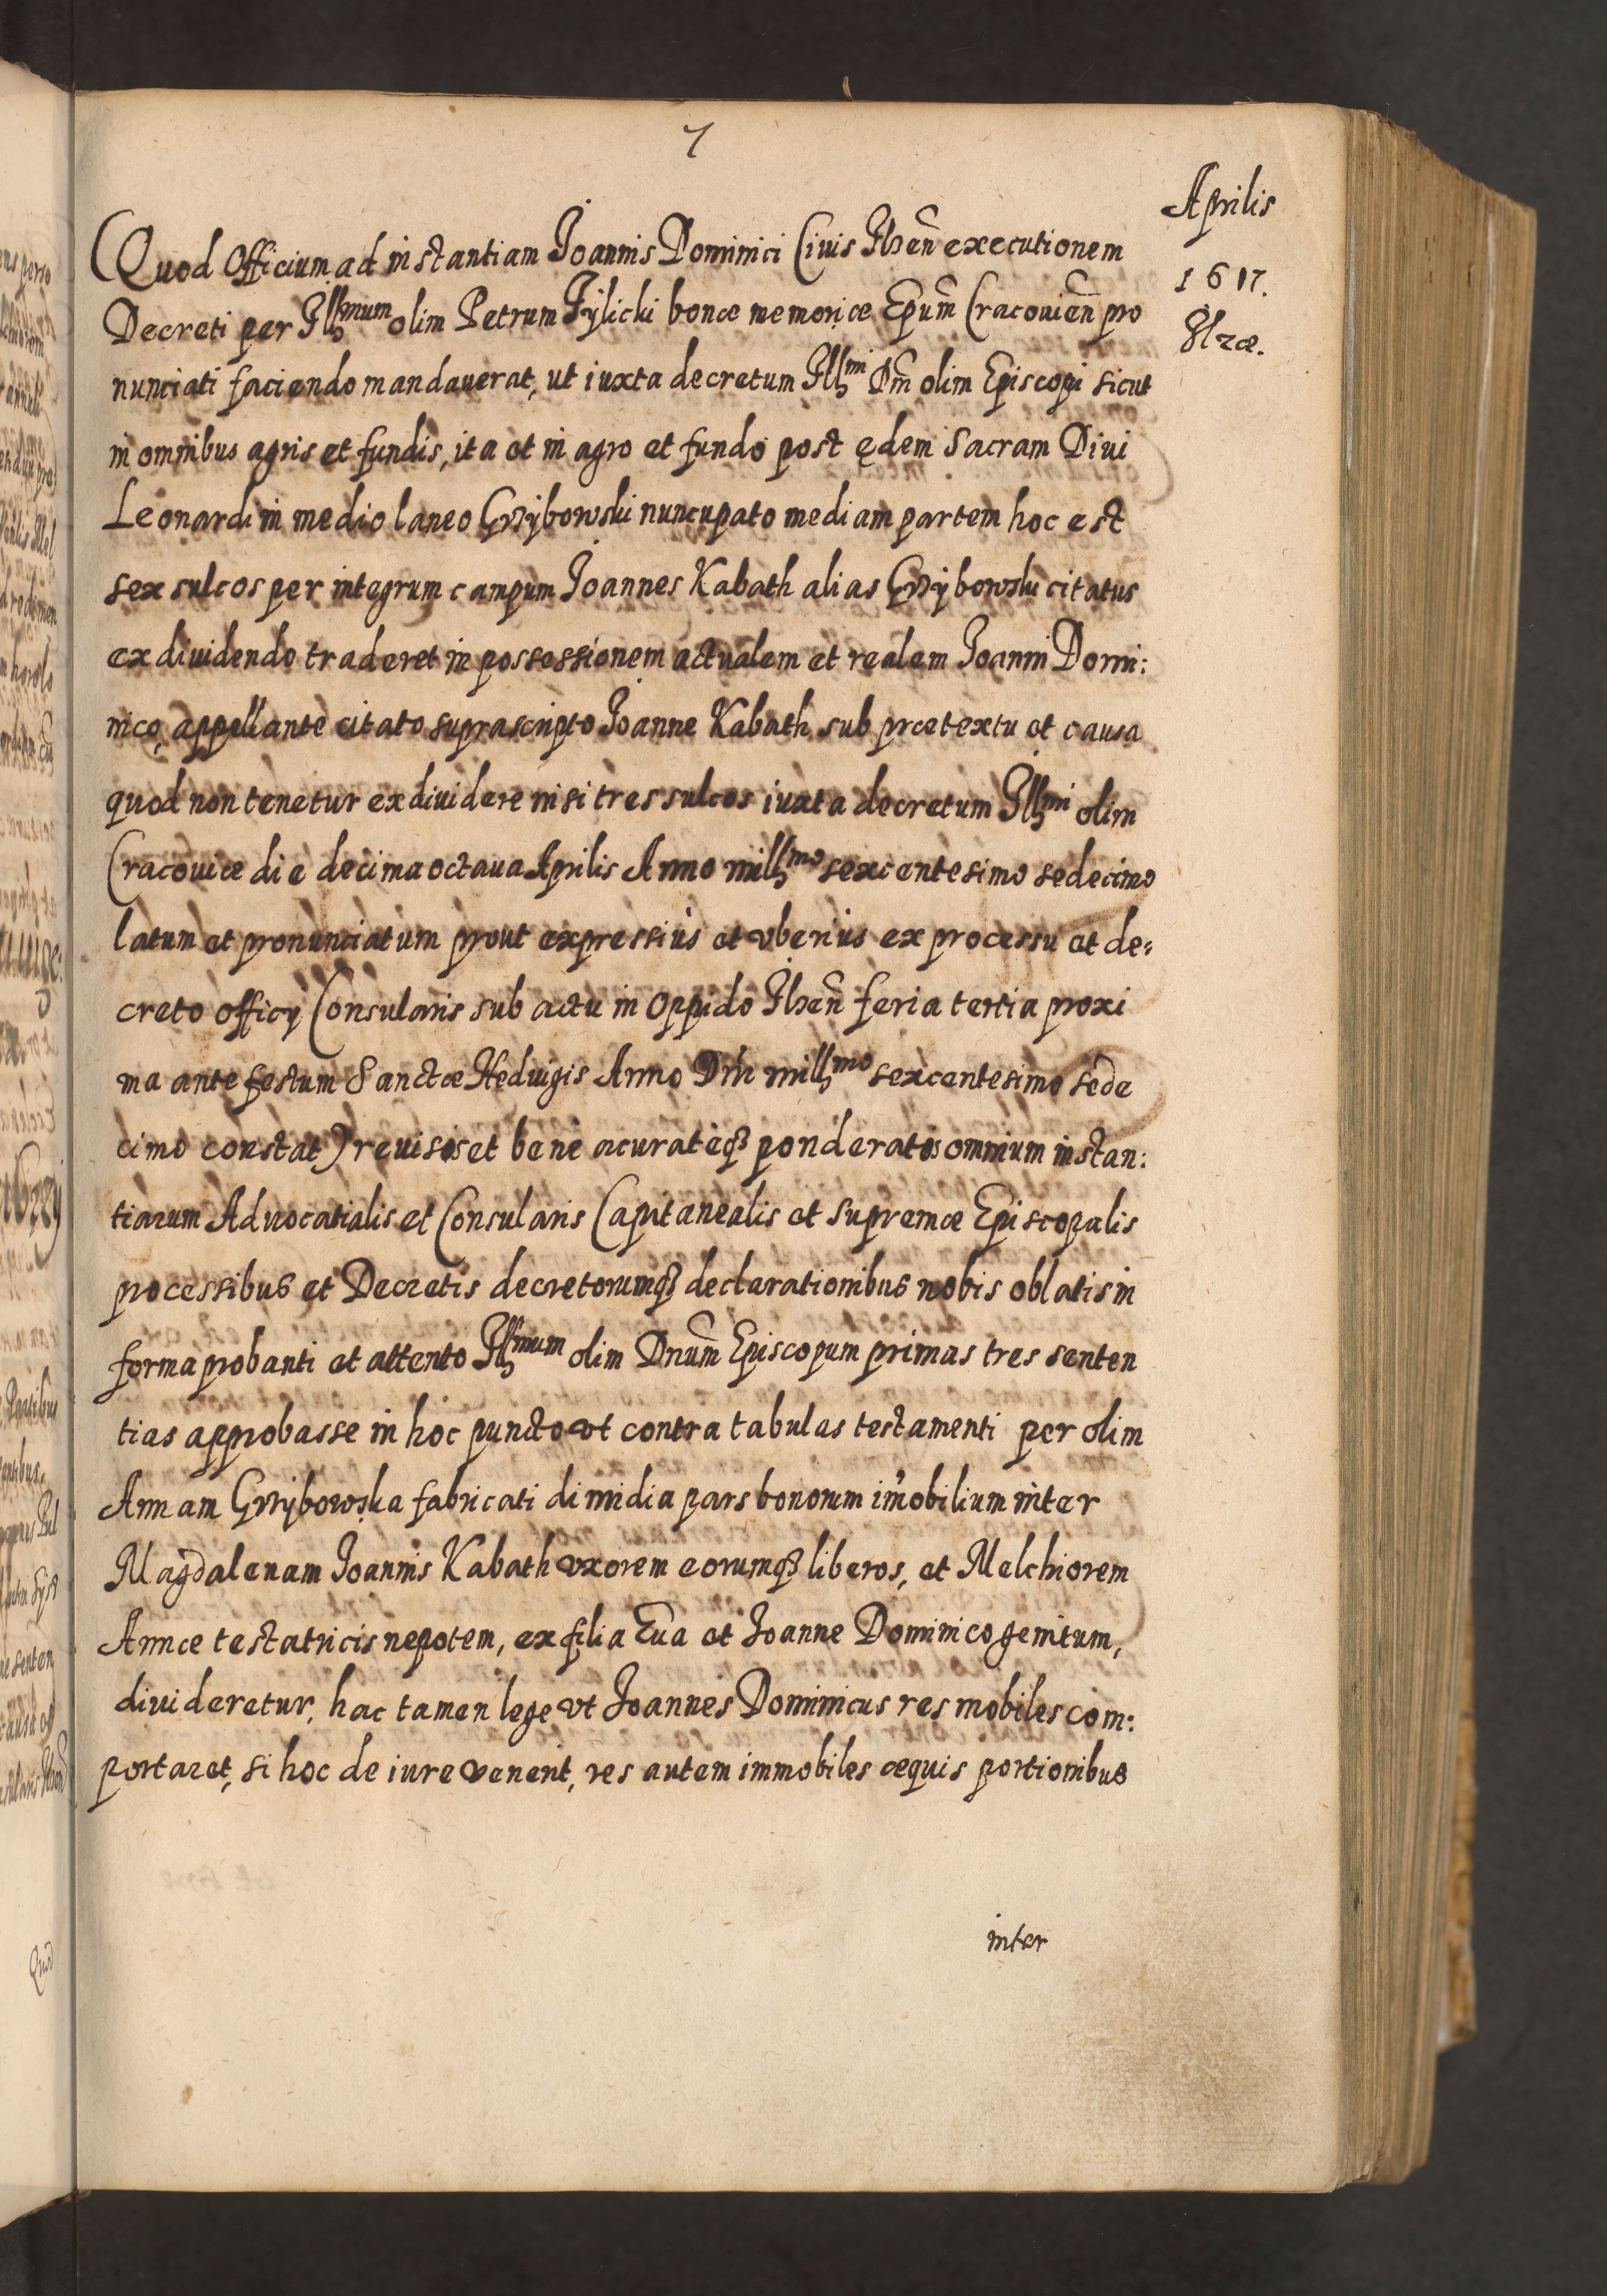 7
Aprilis
1617.
Ilzæ.
(Quod Officium ad instantiam Joannis Dominici Civis Ilzen̄ executionem
Decreti per Illmum olim Petrum Tÿlicki bonæ memoriæ Epum̄ Cracouien̄ pro
nunciati faciendo mandauerat, ut iuxta decretum Illmi Dm̄ olim Episcopi sicut
in omnibus agris et fundis, ita et in agro et fundo post ędem Sacram Diui
Leonardi in medio laneo Grzÿbowski nuncupato mediam partem hoc est
sex sulcos per integrum campum Joannes Kabath alias Grzÿbowski citatus
ex diuidendo traderet in possessionem actualem et realem Joanni Domi:
nico, appellante citato suprascripto Joanne Kabath sub prætextu et causa
quod non tenetur exdiuidere nisi tres sulcos iuxta decretum Illmi olim
Cracouiæ die decima octaua Aprilis Anno millmo sexcentesimo sedecimo
latum et pronunciatum prout expressius et vberius ex processu et de:
creto officÿ Consularis sub actu in Oppido Ilzen̄ feria tertia proxi
ma ante festum Sanctæ Heduigis Anno Dn̄i millmo sexcentesimo sede
cimo constat) reuisis et bene acurateq3 ponderatis omnium instan:
tiarum Aduocatialis et Consularis Capitanealis et Supremæ Episcopalis
processibus et Decretis decretorumq3 declarationibus nobis oblatis in
forma probanti et attento Illmum olim Dnum̄ Episcopum primas tres senten
tias approbasse in hoc puncto vt contra tabulas testamenti per olim
Annam Grzÿbowska fabricati dimidia pars bonorum im̄obilium inter
Magdalenam Joannis Kabath vxorem eorumq3 liberos, et Melchiorem
Annæ testatricis nepotem, ex filia Eua et Joanne Dominico genitum,
diuideretur, hac tamen lege vt Joannes Dominicus res mobiles com:
portaret, si hoc de iure venerit, res autem immobiles æquis portionibus
inter